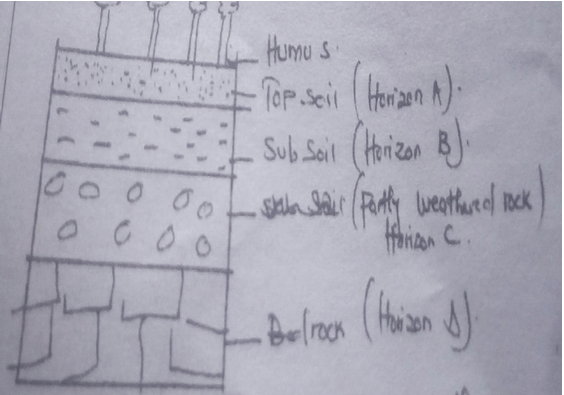 Humus.
Top soil (Horizon A).
Sub Soil (Horizon B).
(Partly weathered rock)
Horizon C.
Bedrock (Horizon D).